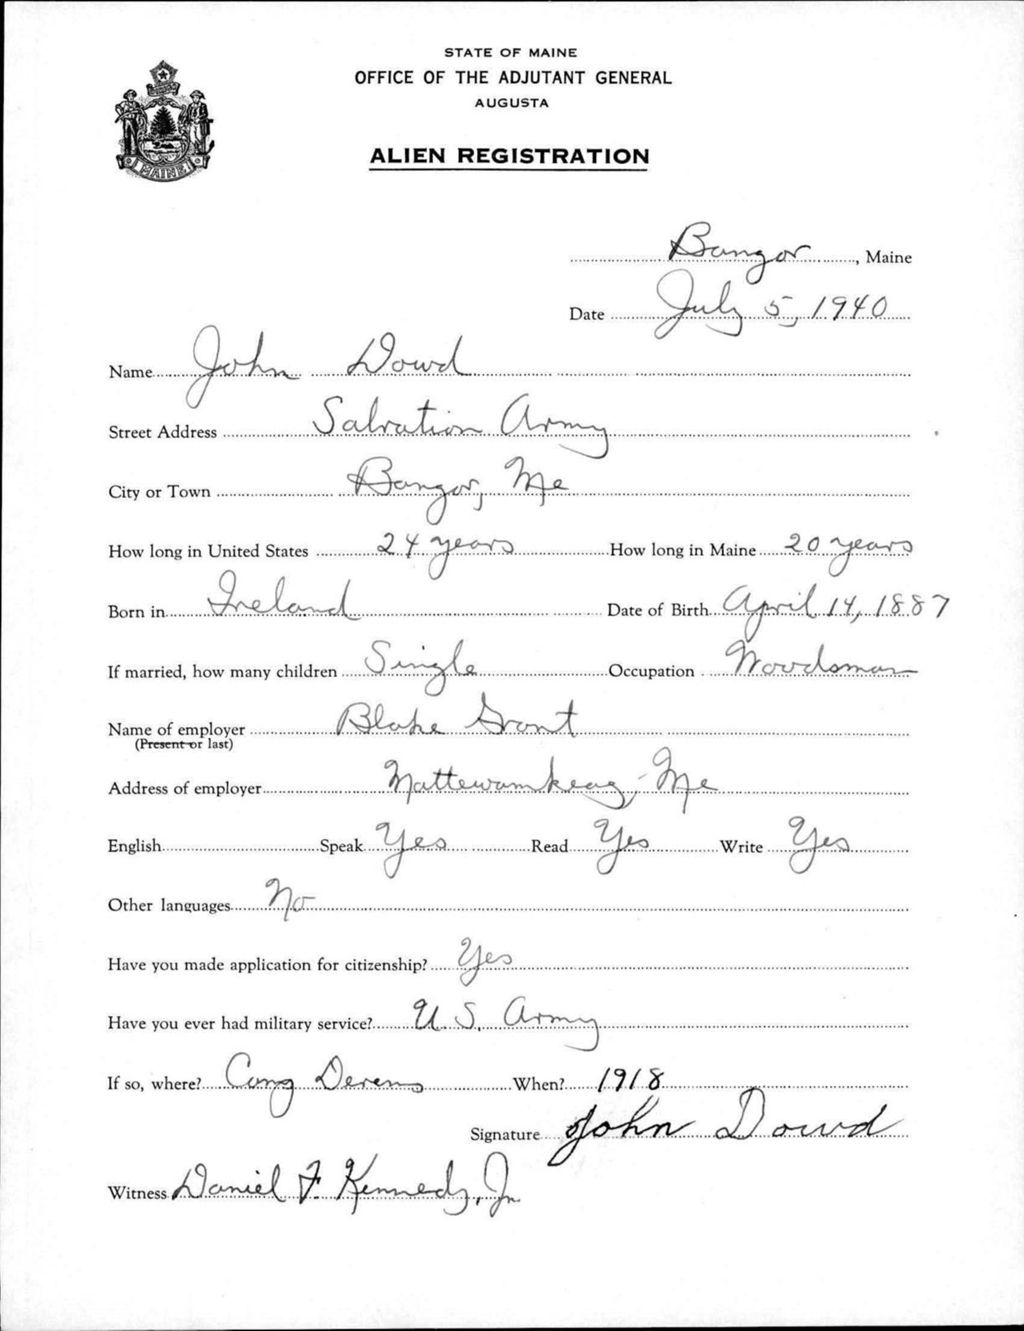 STATE OF MAINE
OFFICE OF THE ADJUTANT GENERAL
AUGUSTA
ALIEN REGISTRATION
MAINE
Bangor, Maine
Date July 5, 1940
Name John Dowd
Street Address Salvation Army
City or Town Bangor, Me
How long in United States 24 years How long in Maine 20 years
Born in Ireland Date of Birth April 14, 1887
If married, how many children Single Occupation Woodsman
Name of employer Blake Grant
(Present or last)
Address of employer Mattewamkeag, Me
English Speak Yes Read Yes Write Yes
Other languages No
Have you made application for citizenship? Yes
Have you ever had military service? U.S. Army
If so, where? Camp Devens When? 1918
Signature John Dowd
Witness Daniel F. Kennedy, Jr.